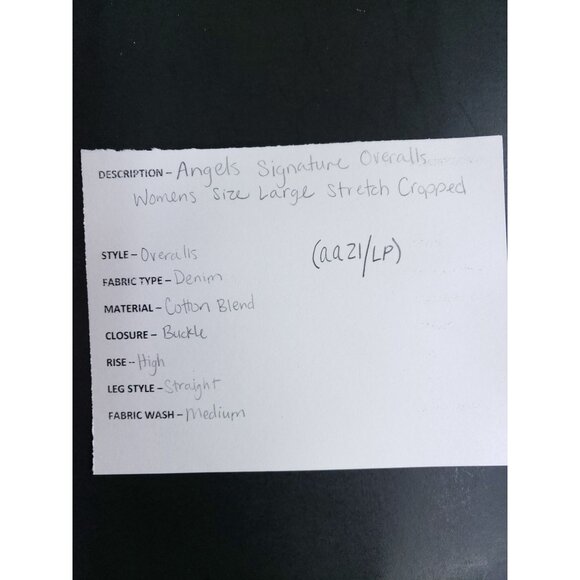 DESCRIPTION – Angels Signature Overalls
Womens Size Large Stretch Cropped
STYLE – Overalls
(aa21/LP)
FABRIC TYPE – Denim
MATERIAL – Cotton Blend
CLOSURE – Buckle
RISE – High
LEG STYLE – Straight
FABRIC WASH – Medium